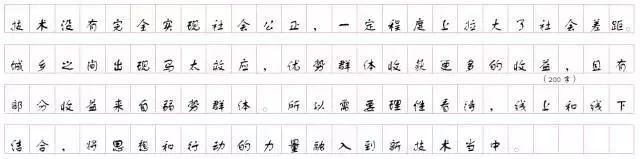 技术没有完全实现社会公正，一定程度上拉大了社会差距。
城乡之间出现马太效应，优势群体收获更多的收益，且有
（200字）
部分收益来自弱势群体。所以需要理性看待，线上和线下
结合，将思想和行动的力量融入到新技术当中。